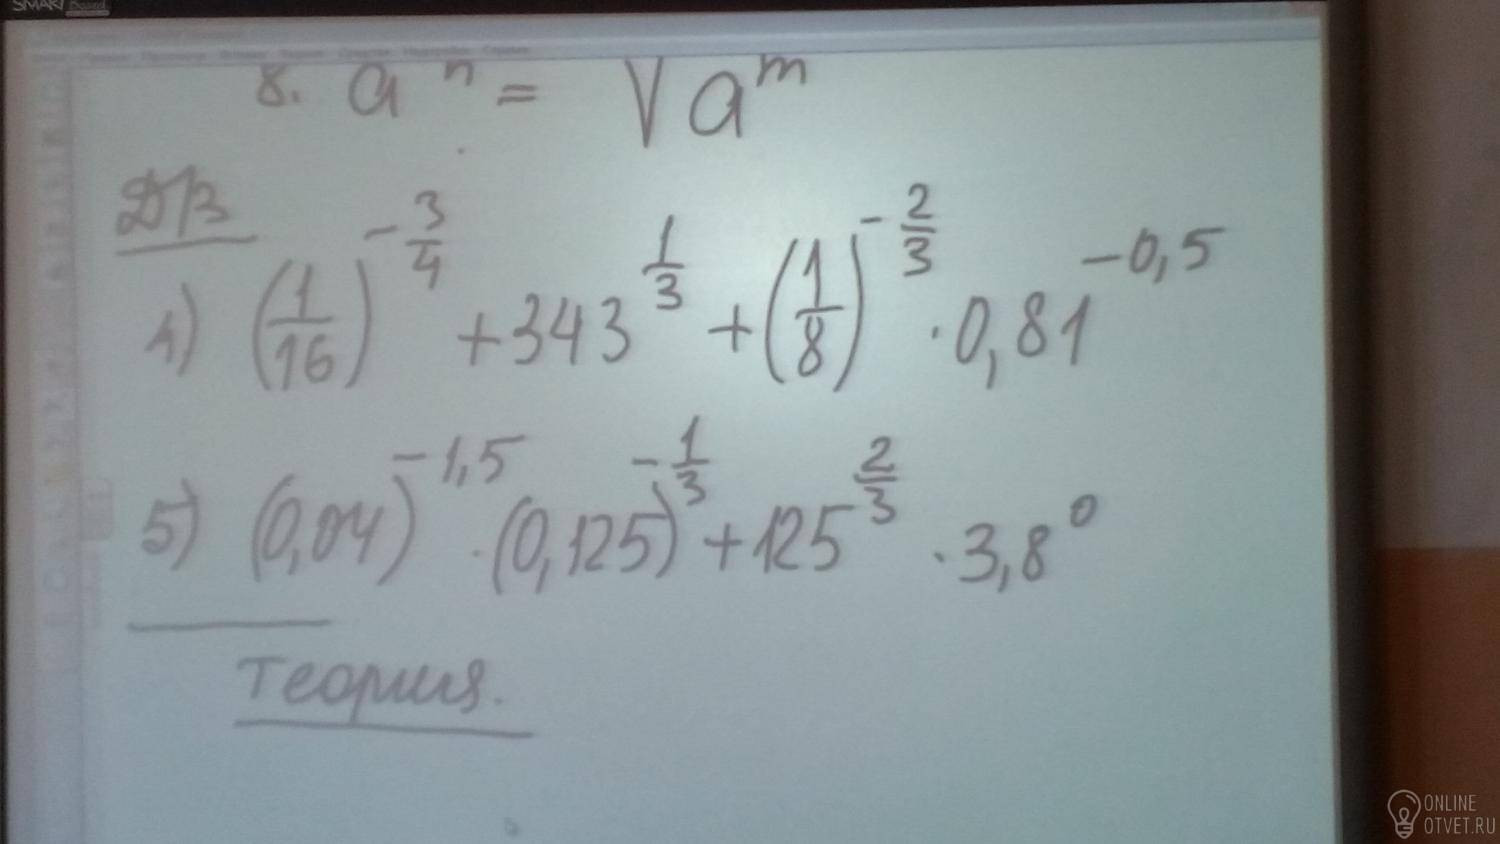 SMART Board
8. a^n = √a^m
Д/З
4) (1/16)^(-3/4) + 343^(1/3) + (1/8)^(-2/3) · 0,81^(-0,5)
5) (0,04)^(-1,5) · (0,125)^(-1/3) + 125^(2/3) · 3,8^0
Теория.
ONLINE
OTVET.RU